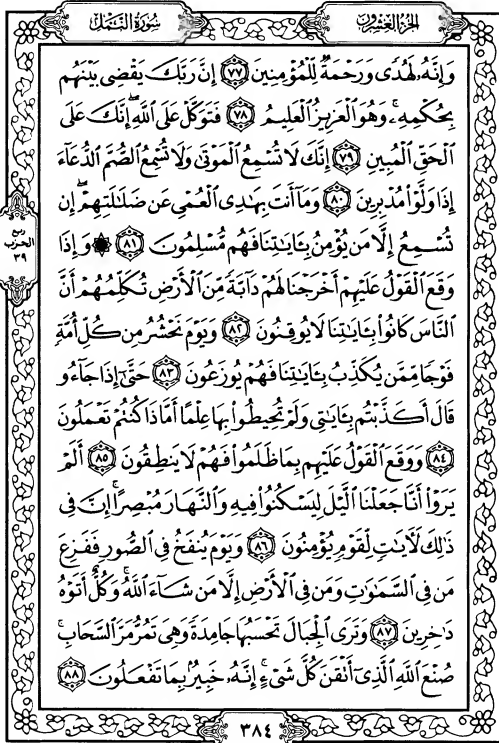 سُورَةُ النَّمْلِ
الجُزْءُ العِشْرُونَ
وَإِنَّهُۥ لَهُدًى وَرَحْمَةٌ لِّلْمُؤْمِنِينَ ٧٧ إِنَّ رَبَّكَ يَقْضِى بَيْنَهُم
بِحُكْمِهِۦ ۚ وَهُوَ الْعَزِيزُ الْعَلِيمُ ٧٨ فَتَوَكَّلْ عَلَى اللَّهِ ۖ إِنَّكَ عَلَى
الْحَقِّ الْمُبِينِ ٧٩ إِنَّكَ لَا تُسْمِعُ الْمَوْتَىٰ وَلَا تُسْمِعُ الصُّمَّ الدُّعَآءَ
إِذَا وَلَّوْا۟ مُدْبِرِينَ ٨٠ وَمَآ أَنتَ بِهَٰدِى الْعُمْىِ عَن ضَلَٰلَتِهِمْ ۖ إِن
تُسْمِعُ إِلَّا مَن يُؤْمِنُ بِـَٔايَٰتِنَا فَهُم مُّسْلِمُونَ ٨١ ۞ وَإِذَا
وَقَعَ الْقَوْلُ عَلَيْهِمْ أَخْرَجْنَا لَهُمْ دَآبَّةً مِّنَ الْأَرْضِ تُكَلِّمُهُمْ أَنَّ
النَّاسَ كَانُوا۟ بِـَٔايَٰتِنَا لَا يُوقِنُونَ ٨٢ وَيَوْمَ نَحْشُرُ مِن كُلِّ أُمَّةٍ
فَوْجًا مِّمَّن يُكَذِّبُ بِـَٔايَٰتِنَا فَهُمْ يُوزَعُونَ ٨٣ حَتَّىٰٓ إِذَا جَآءُو
قَالَ أَكَذَّبْتُم بِـَٔايَٰتِى وَلَمْ تُحِيطُوا۟ بِهَا عِلْمًا أَمَّاذَا كُنتُمْ تَعْمَلُونَ
٨٤ وَوَقَعَ الْقَوْلُ عَلَيْهِم بِمَا ظَلَمُوا۟ فَهُمْ لَا يَنطِقُونَ ٨٥ أَلَمْ
يَرَوْا۟ أَنَّا جَعَلْنَا الَّيْلَ لِيَسْكُنُوا۟ فِيهِ وَالنَّهَارَ مُبْصِرًا ۚ إِنَّ فِى
ذَٰلِكَ لَءَايَٰتٍ لِّقَوْمٍ يُؤْمِنُونَ ٨٦ وَيَوْمَ يُنفَخُ فِى الصُّورِ فَفَزِعَ
مَن فِى السَّمَٰوَٰتِ وَمَن فِى الْأَرْضِ إِلَّا مَن شَآءَ اللَّهُ ۚ وَكُلٌّ أَتَوْهُ
دَٰخِرِينَ ٨٧ وَتَرَى الْجِبَالَ تَحْسَبُهَا جَامِدَةً وَهِىَ تَمُرُّ مَرَّ السَّحَابِ ۚ
صُنْعَ اللَّهِ الَّذِىٓ أَتْقَنَ كُلَّ شَىْءٍ ۚ إِنَّهُۥ خَبِيرٌۢ بِمَا تَفْعَلُونَ ٨٨
ربع
الحزب
٣٩
٣٨٤